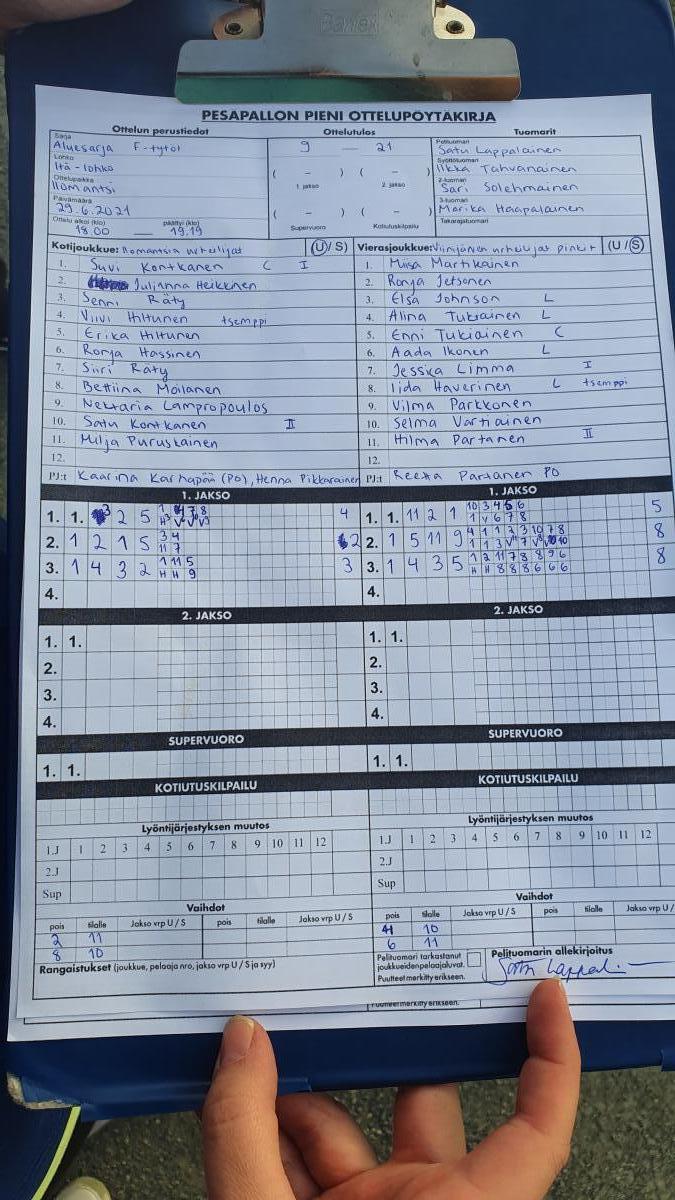 PESÄPALLON PIENI OTTELUPÖYTÄKIRJA
Ottelun perustiedot Ottelutulos Tuomarit
Sarja Aluesarja F-tytöt
9 — 21
Pelituomari Satu Lappalainen
Lohko Itä-lohko
Syöttötuomari Ilkka Tahvanainen
Ottelupaikka Ilomantsi
( – ) ( – )
1. jakso 2. jakso
2-tuomari Sari Solehmainen
Päivämäärä 29.6.2021
3-tuomari Marika Haapalainen
Ottelu alkoi (klo) 18.00 — päättyi (klo) 19.19
( – ) ( – )
Supervuoro Kotiutuskilpailu
Takarajatuomari
Kotijoukkue: (U/S) Vierasjoukkue: (U/S)
1. Suvi Kontkanen C I
2. Julianna Heikkinen
3. Senni Räty
4. Viivi Hiltunen tsemppi
5. Erika Hiltunen
6. Ronja Hassinen
7. Siiri Räty
8. Bettiina Moilanen
9. Nektaria Lampropoulos
10. Satu Kontkanen II
11. Milja Puruskainen
12.
PJ:t Kaarina Karhapää (PO), Henna Pikkarainen
1. Miisa Martikainen
2. Ronja Jetsonen
3. Elsa Johnson L
4. Alina Tukiainen L
5. Enni Tukiainen C
6. Aada Ikonen L
7. Jessica Limma I
8. Iida Haverinen L tsemppi
9. Vilma Parkkonen
10. Selma Vartiainen
11. Hilma Partanen II
12.
PJ:t Reetta Partanen PO
1. JAKSO 1. JAKSO
1. 1. 2 5 4
2. 1 2 1 5 3 4 2
11 7
3. 1 4 3 2 1 11 5 3
H H 9
4.
1. 1. 11 2 1 10 3 4 5 6 5
1 V 6 7 8
2. 1 5 11 9 8
3. 1 4 3 5 1 2 11 7 8 8 9 6 8
H H 8 8 8 6 6 6
4.
2. JAKSO 2. JAKSO
1. 1. 1. 1.
2. 2.
3. 3.
4. 4.
SUPERVUORO SUPERVUORO
1. 1. 1. 1.
KOTIUTUSKILPAILU KOTIUTUSKILPAILU
Lyöntijärjestyksen muutos Lyöntijärjestyksen muutos
1.J 1 2 3 4 5 6 7 8 9 10 11 12 1.J 1 2 3 4 5 6 7 8 9 10 11 12
2.J 2.J
Sup Sup
Vaihdot Vaihdot
pois tilalle Jakso vrp U / S pois tilalle Jakso vrp U / S
2 11
8 10
pois tilalle Jakso vrp U / S pois tilalle Jakso vrp U /
10
6 11
Rangaistukset (joukkue, pelaaja nro, jakso vrp U / S ja syy)
Pelituomari tarkastanut
joukkueidenpelaajaluvat.
Puutteet merkitty erikseen.
Pelituomarin allekirjoitus
Puutteet merkitty erikseen.